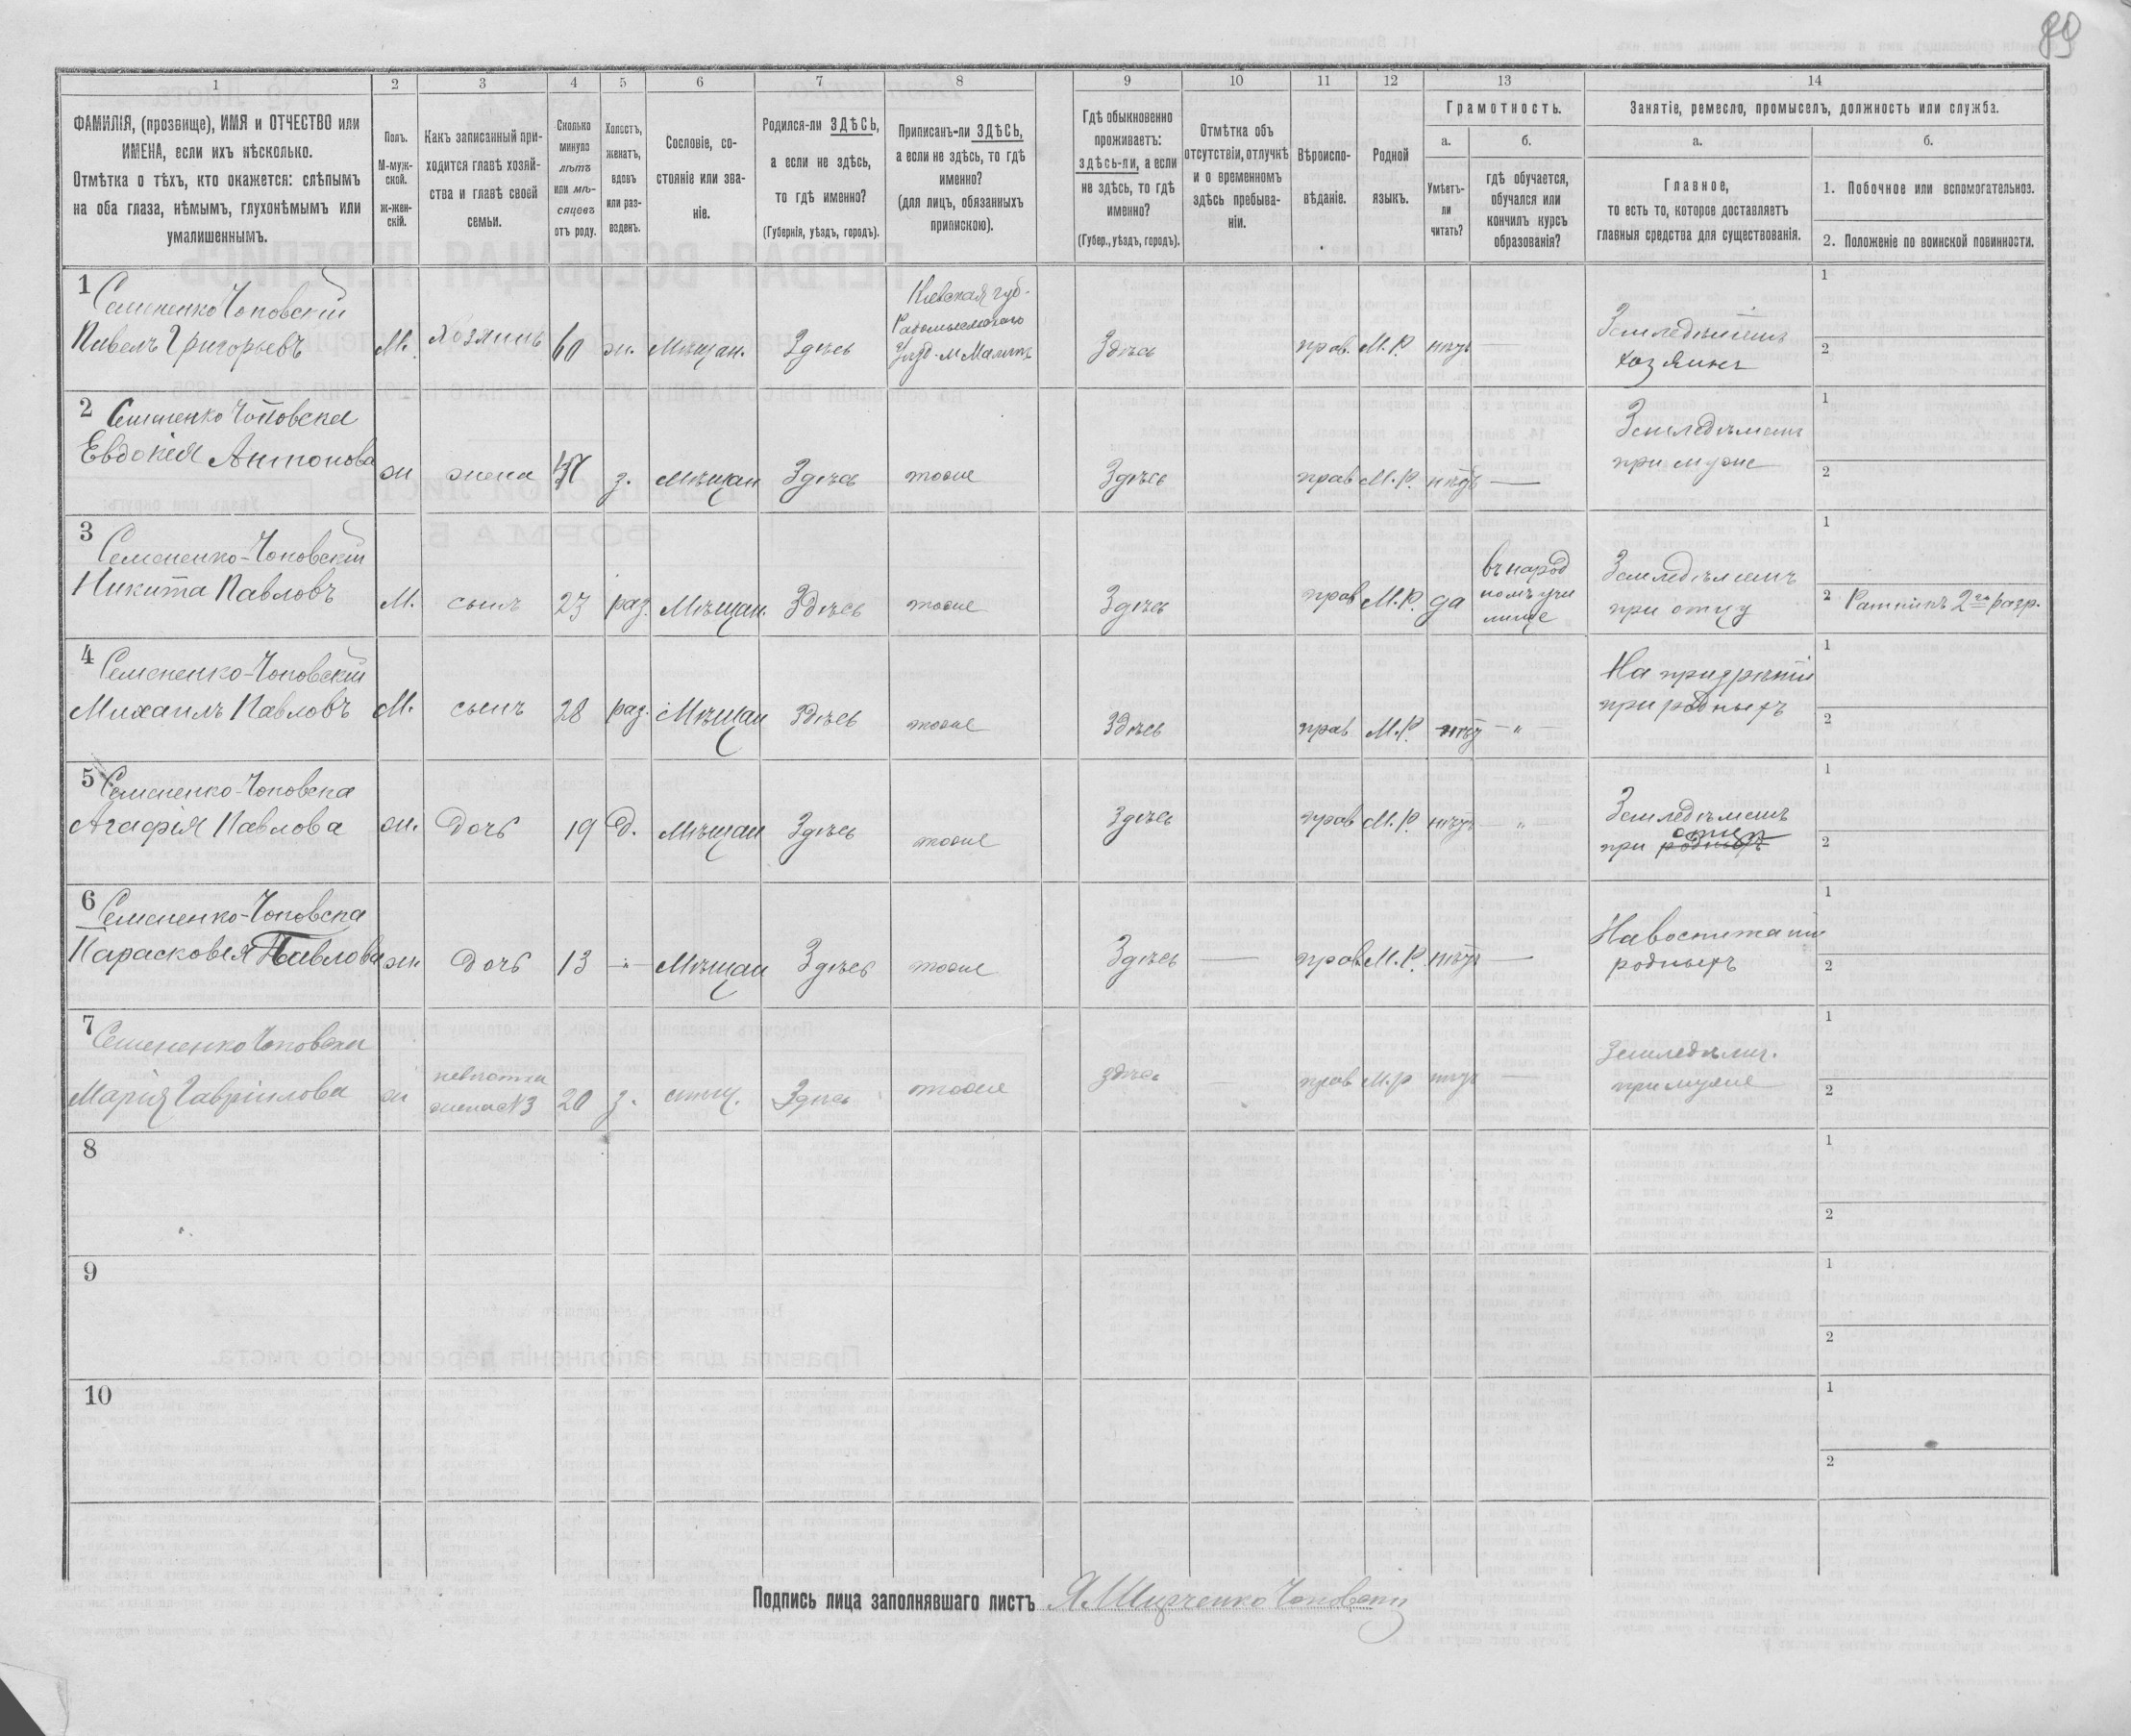 89
1 2 3 4 5 6 7 8 9 10 11 12 13 14
ФАМИЛІЯ, (прозвище), ИМЯ и ОТЧЕСТВО или
ИМЕНА, если ихъ нѣсколько.
Отмѣтка о тѣхъ, кто окажется: слѣпымъ
на оба глаза, нѣмымъ, глухонѣмымъ или
умалишеннымъ.
Полъ.
М-муж-
ской.
ж-жен-
скій.
Какъ записанный при-
ходится главѣ хозяй-
ства и главѣ своей
семьи.
Сколько
минуло
лѣтъ
или мѣ-
сяцевъ
отъ роду.
Холостъ,
женатъ,
вдовъ
или раз-
веденъ.
Сословіе, со-
стояніе или зва-
ніе.
Родился-ли ЗДѢСЬ,
а если не здѣсь,
то гдѣ именно?
(Губернія, уѣздъ, городъ).
Приписанъ-ли ЗДѢСЬ,
а если не здѣсь, то гдѣ
именно?
(для лицъ, обязанныхъ
припискою).
Гдѣ обыкновенно
проживаетъ:
здѣсь-ли, а если
не здѣсь, то гдѣ
именно?
(Губер., уѣздъ, городъ).
Отмѣтка объ
отсутствіи, отлучкѣ
и о временномъ
здѣсь пребыва-
ніи.
Вѣроиспо-
вѣданіе.
Родной
языкъ.
Грамотность.
а.
Умѣетъ-
ли
читать?
б.
гдѣ обучается,
обучался или
кончилъ курсъ
образованія?
Занятіе, ремесло, промыселъ, должность или служба.
а.
Главное,
то есть то, которое доставляетъ
главныя средства для существованія.
б.
1. Побочное или вспомогательное.
2. Положеніе по воинской повинности.
1 Семененко Чоповскій
Павелъ Григорьевъ
М. Хозяинъ 60 ж. Мѣщан. Здѣсь
Кіевская губ.
Радомысльскаго
Уѣзд. м Малинъ
Здѣсь прав. М.Р. нѣтъ —
Земледѣлецъ
хозяинъ
1
2
2 Семененко Чоповска
Евдокія Антонова
ж жена з. мѣщан Здѣсь тоже Здѣсь прав М.Р. нѣтъ —
Земледѣлецъ
при мужѣ
1
2
3 Семененко-Чоповскій
Никита Павловъ
М. сынъ 23 раз. Мѣщан. Здѣсь тоже Здѣсь прав М.Р. да
въ народ
номъ учи
лище
Земледѣлецъ
при отцу
1
2 Ратникъ 2го разр.
4 Семененко-Чоповскій
Михаилъ Павловъ
М. сынъ 28 раз. Мѣщан Здѣсь тоже Здѣсь прав М.Р. нѣтъ — " —
На призрѣніи
при родныхъ
1
2
5 Семененко-Чоповска
Агафія Павлова
ж. Дочь 19 д. Мѣщан Здѣсь тоже Здѣсь прав М.Р. нѣтъ — " —
Земледѣлецъ
отцу
при родныхъ
1
2
6 Семененко-Чоповска
Парасковея Павлова
ж Дочь 13 — " — Мѣщан Здѣсь тоже Здѣсь — прав М.Р. нѣтъ —
На воспитаніи
родныхъ
1
2
7 Семененко Чоповска
Марія Гавріилова
ж
невѣстка
жена №3
20 з. Здѣсь тоже здѣсь — прав М.Р нѣтъ —
Земледѣлец.
при мужѣ
1
2
8
1
2
9
1
2
10
1
2
Подпись лица заполнявшаго листъ Чоповскій